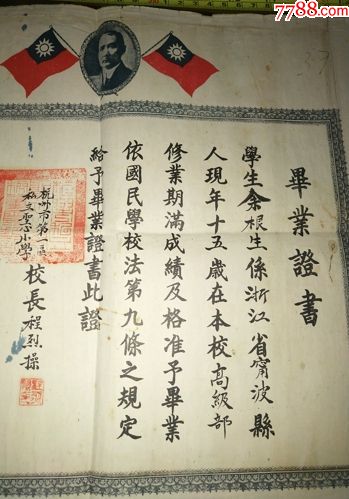 7788.com
畢業證書
學生余根生係浙江省甯波縣
人現年十五歲在本校高級部
修業期滿成績及格准予畢業
依國民學校法第九條之規定
給予畢業證書此證
杭州市第一區
私立雲心小學
校長程烈操